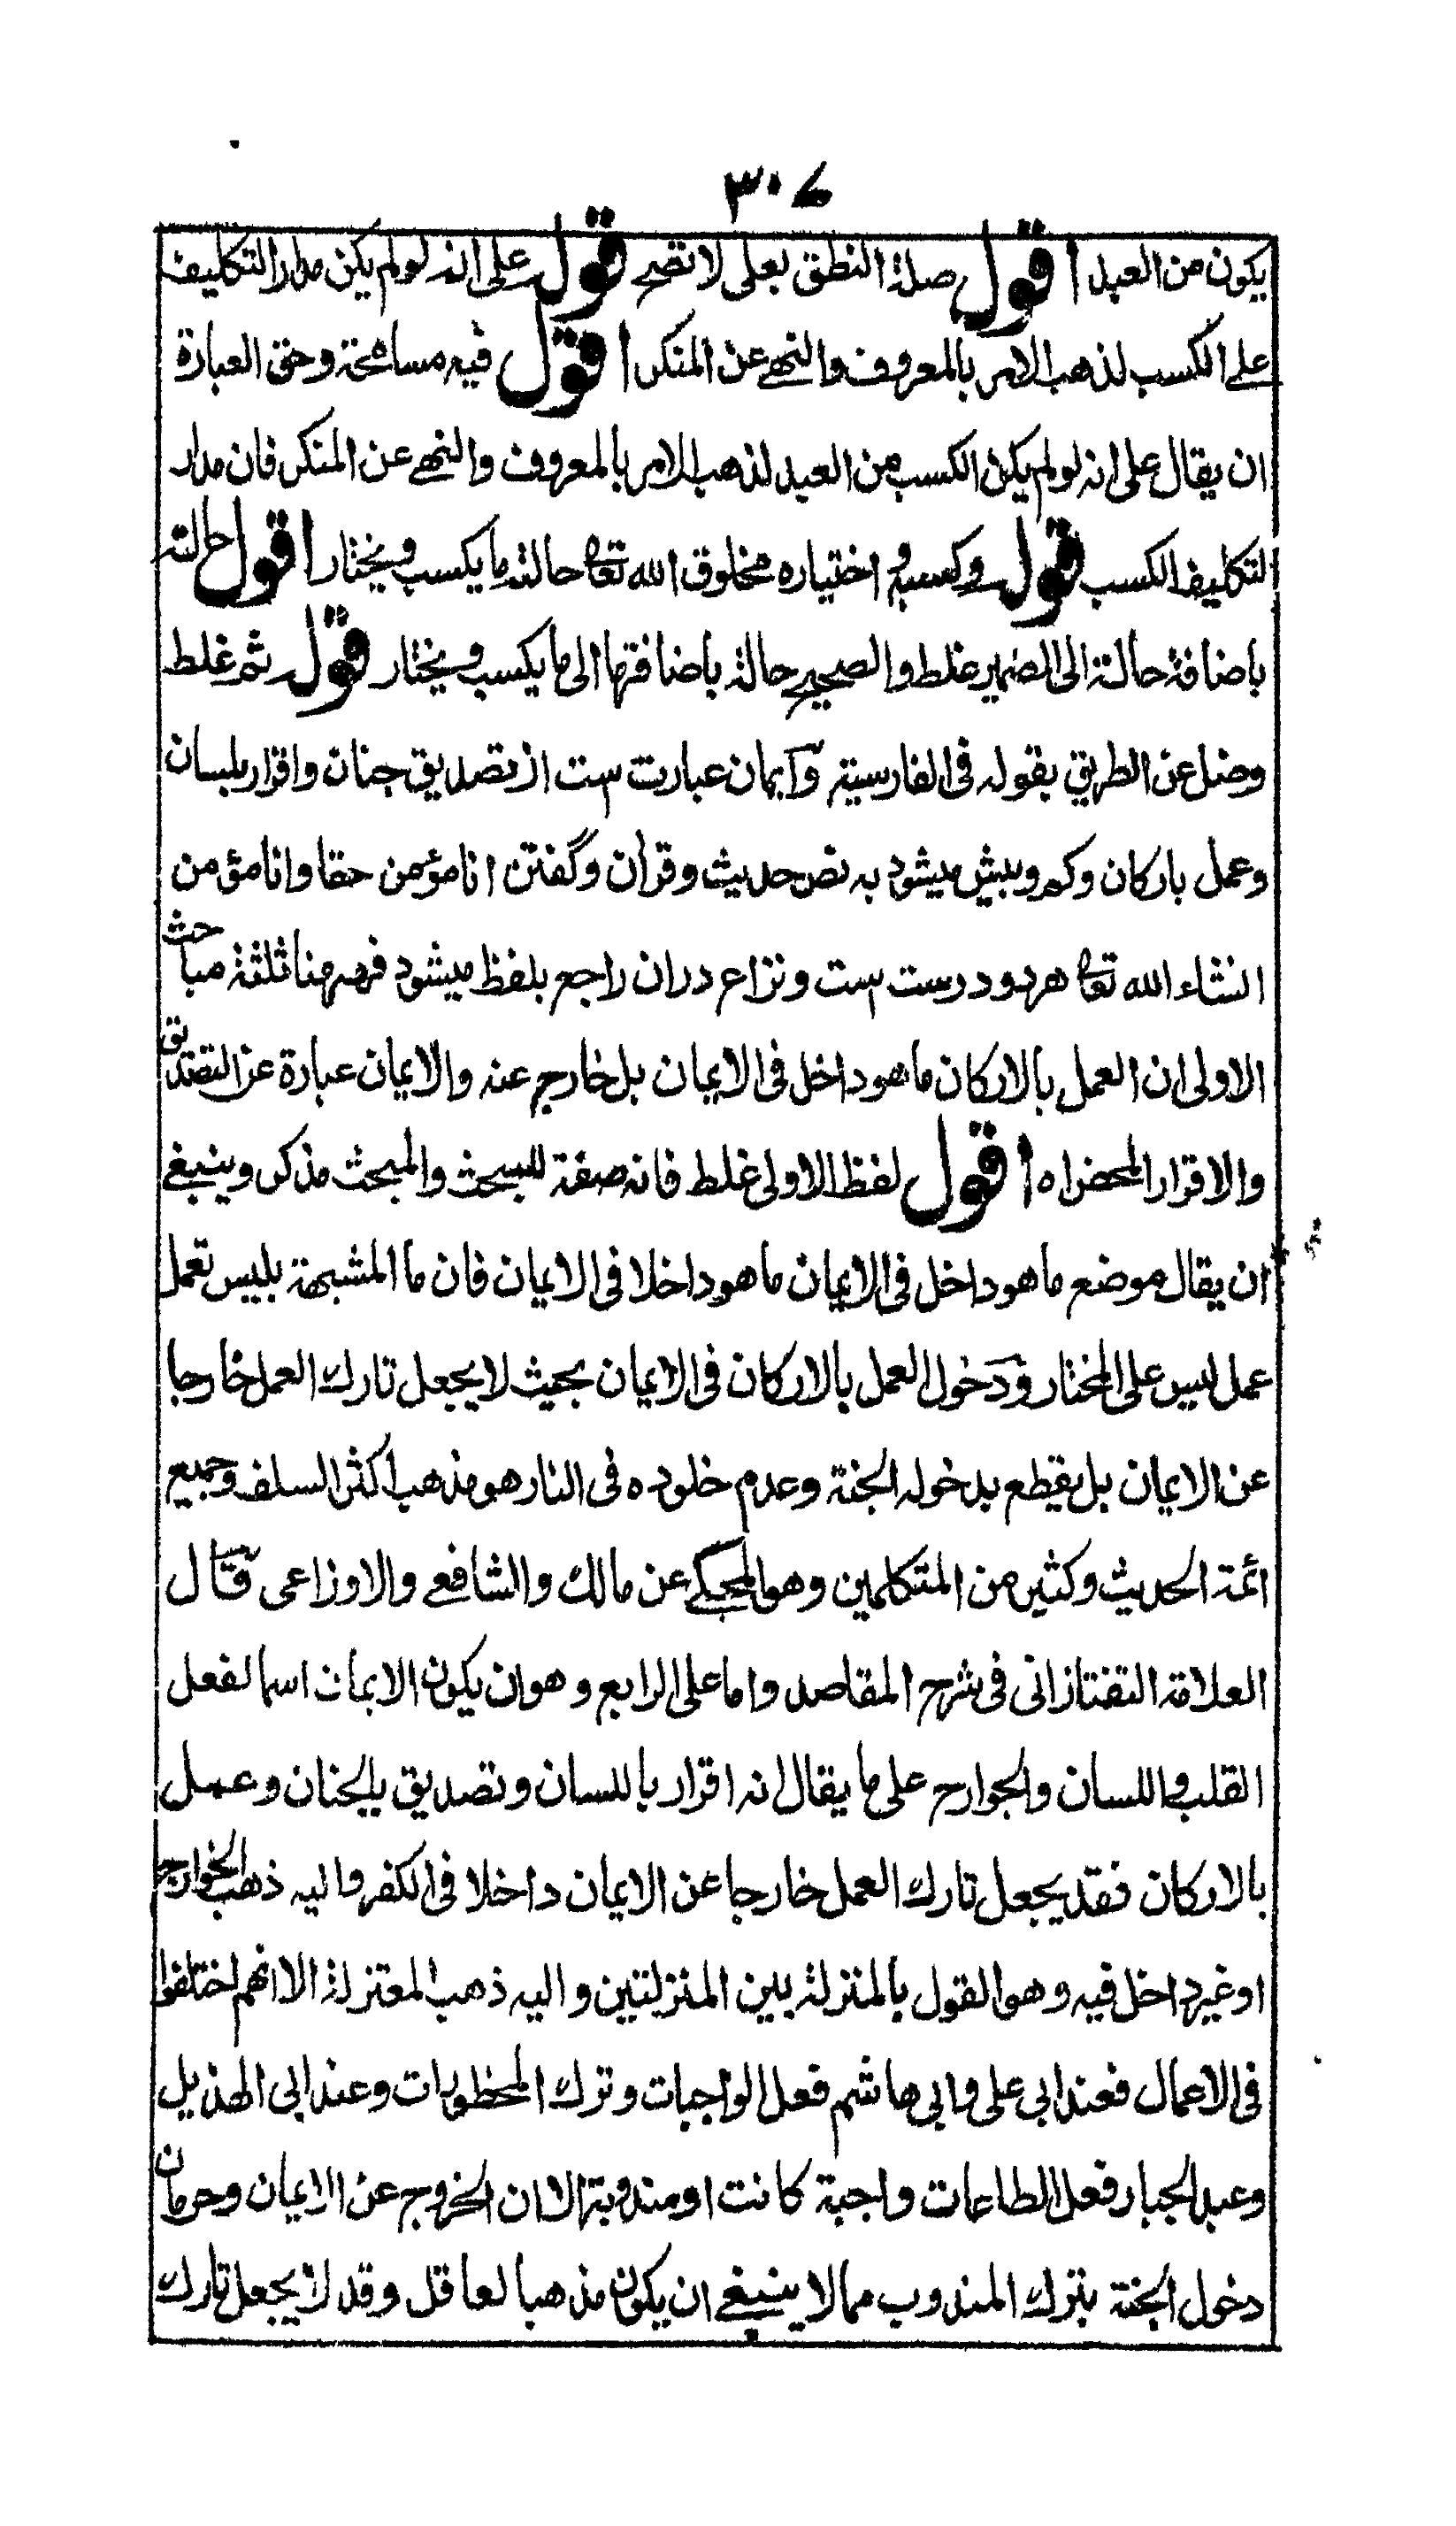 ٣٠٧
يكون من العبد اقول صلة النطق بعلى لا تصح قوله على انه لو لم يكن مدار التكليف
على الكسب لذهب الامر بالمعروف والنهي عن المنكر اقول فيه مسامحة وحق العبارة
ان يقال على انه لو لم يكن الكسب من العبد لذهب الامر بالمعروف والنهي عن المنكر فان مدار
لتكليف الكسب قوله وكسبه و اختياره مخلوق الله تعا حالته ما يكسب ويختار اقول حالته
باضافة حالة الى الضمير غلط والصحيح حالة باضافتها الى ما يكسب ويختار قوله ثم غلط
وضل عن الطريق بقوله فى الفارسية وايمان عبارت ست از تصديق جنان واقرار بلسان
وعمل باركان وكم وبيش ميشود به نص حديث وقران وگفتن انا مؤمن حقا وانا مؤمن
انشاء الله تعا هر دو درست ست ونزاع دران راجع بلفظ ميشود فههنا ثلثة مباحث
الاولى ان العمل بالاركان ما هو داخل فى الايمان بل خارج عنه والايمان عبارة عن التصديق
والاقرار المحض اه اقول لفظ الاولى غلط فانه صفة للمبحث والمبحث مذكر وينبغي
ان يقال موضع ما هو داخل فى الايمان ما هو داخلا فى الايمان فان ما المشبهة بليس تعمل
عمل ليس على المختار ودخول العمل بالاركان فى الايمان بحيث لا يجعل تارك العمل خارجا
عن الايمان بل يقطع بدخوله الجنة وعدم خلوده فى النار هو مذهب اكثر السلف وجميع
ائمة الحديث وكثير من المتكلمين وهو المحكي عن مالك والشافعي والاوزاعى وقال
العلامة التفتازانى فى شرح المقاصد واما على الرابع وهو ان يكون الايمان اسما لفعل
القلب واللسان والجوارح على ما يقال انه اقرار باللسان وتصديق بالجنان وعمل
بالاركان فقد يجعل تارك العمل خارجا عن الايمان داخلا فى الكفر واليه ذهب الخوارج
او غير داخل فيه وهو القول بالمنزلة بين المنزلتين واليه ذهب المعتزلة الا انهم اختلفوا
فى الاعمال فعند ابى على وابى هاشم فعل الواجبات وترك المحظورات وعند ابى الهذيل
وعبد الجبار فعل الطاعات واجبة كانت او مندوبة الا ان الخروج عن الايمان وحرمان
دخول الجنة بترك المندوب مما لا ينبغي ان يكون مذهبا لعاقل وقد لا يجعل تارك